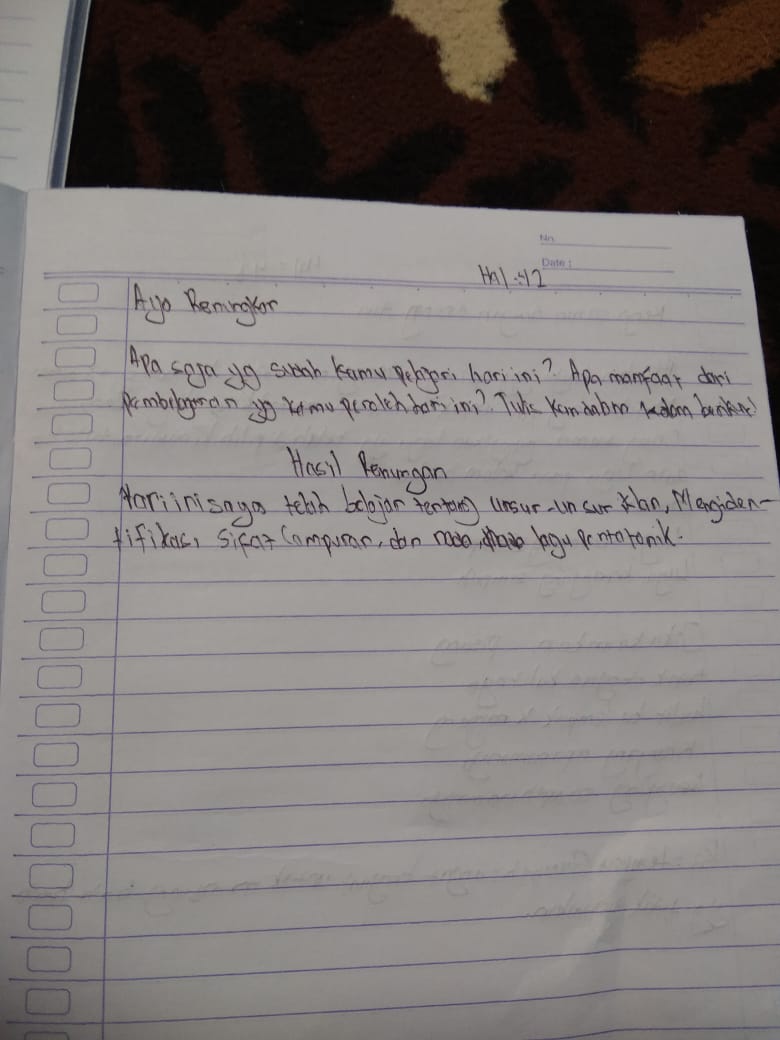 No.
Date :
Hal : 42
Ayo Renungkan
Apa saja yg sudah kamu pelajari hari ini? Apa manfaat dari
pembelajaran yg kamu peroleh hari ini? Tulis kan dalam kolom berikut!
Hasil Renungan
Hari ini saya telah belajar tentang unsur-unsur iklan, Mengiden-
tifikasi sifat Campuran, dan nada lagu pentatonik.